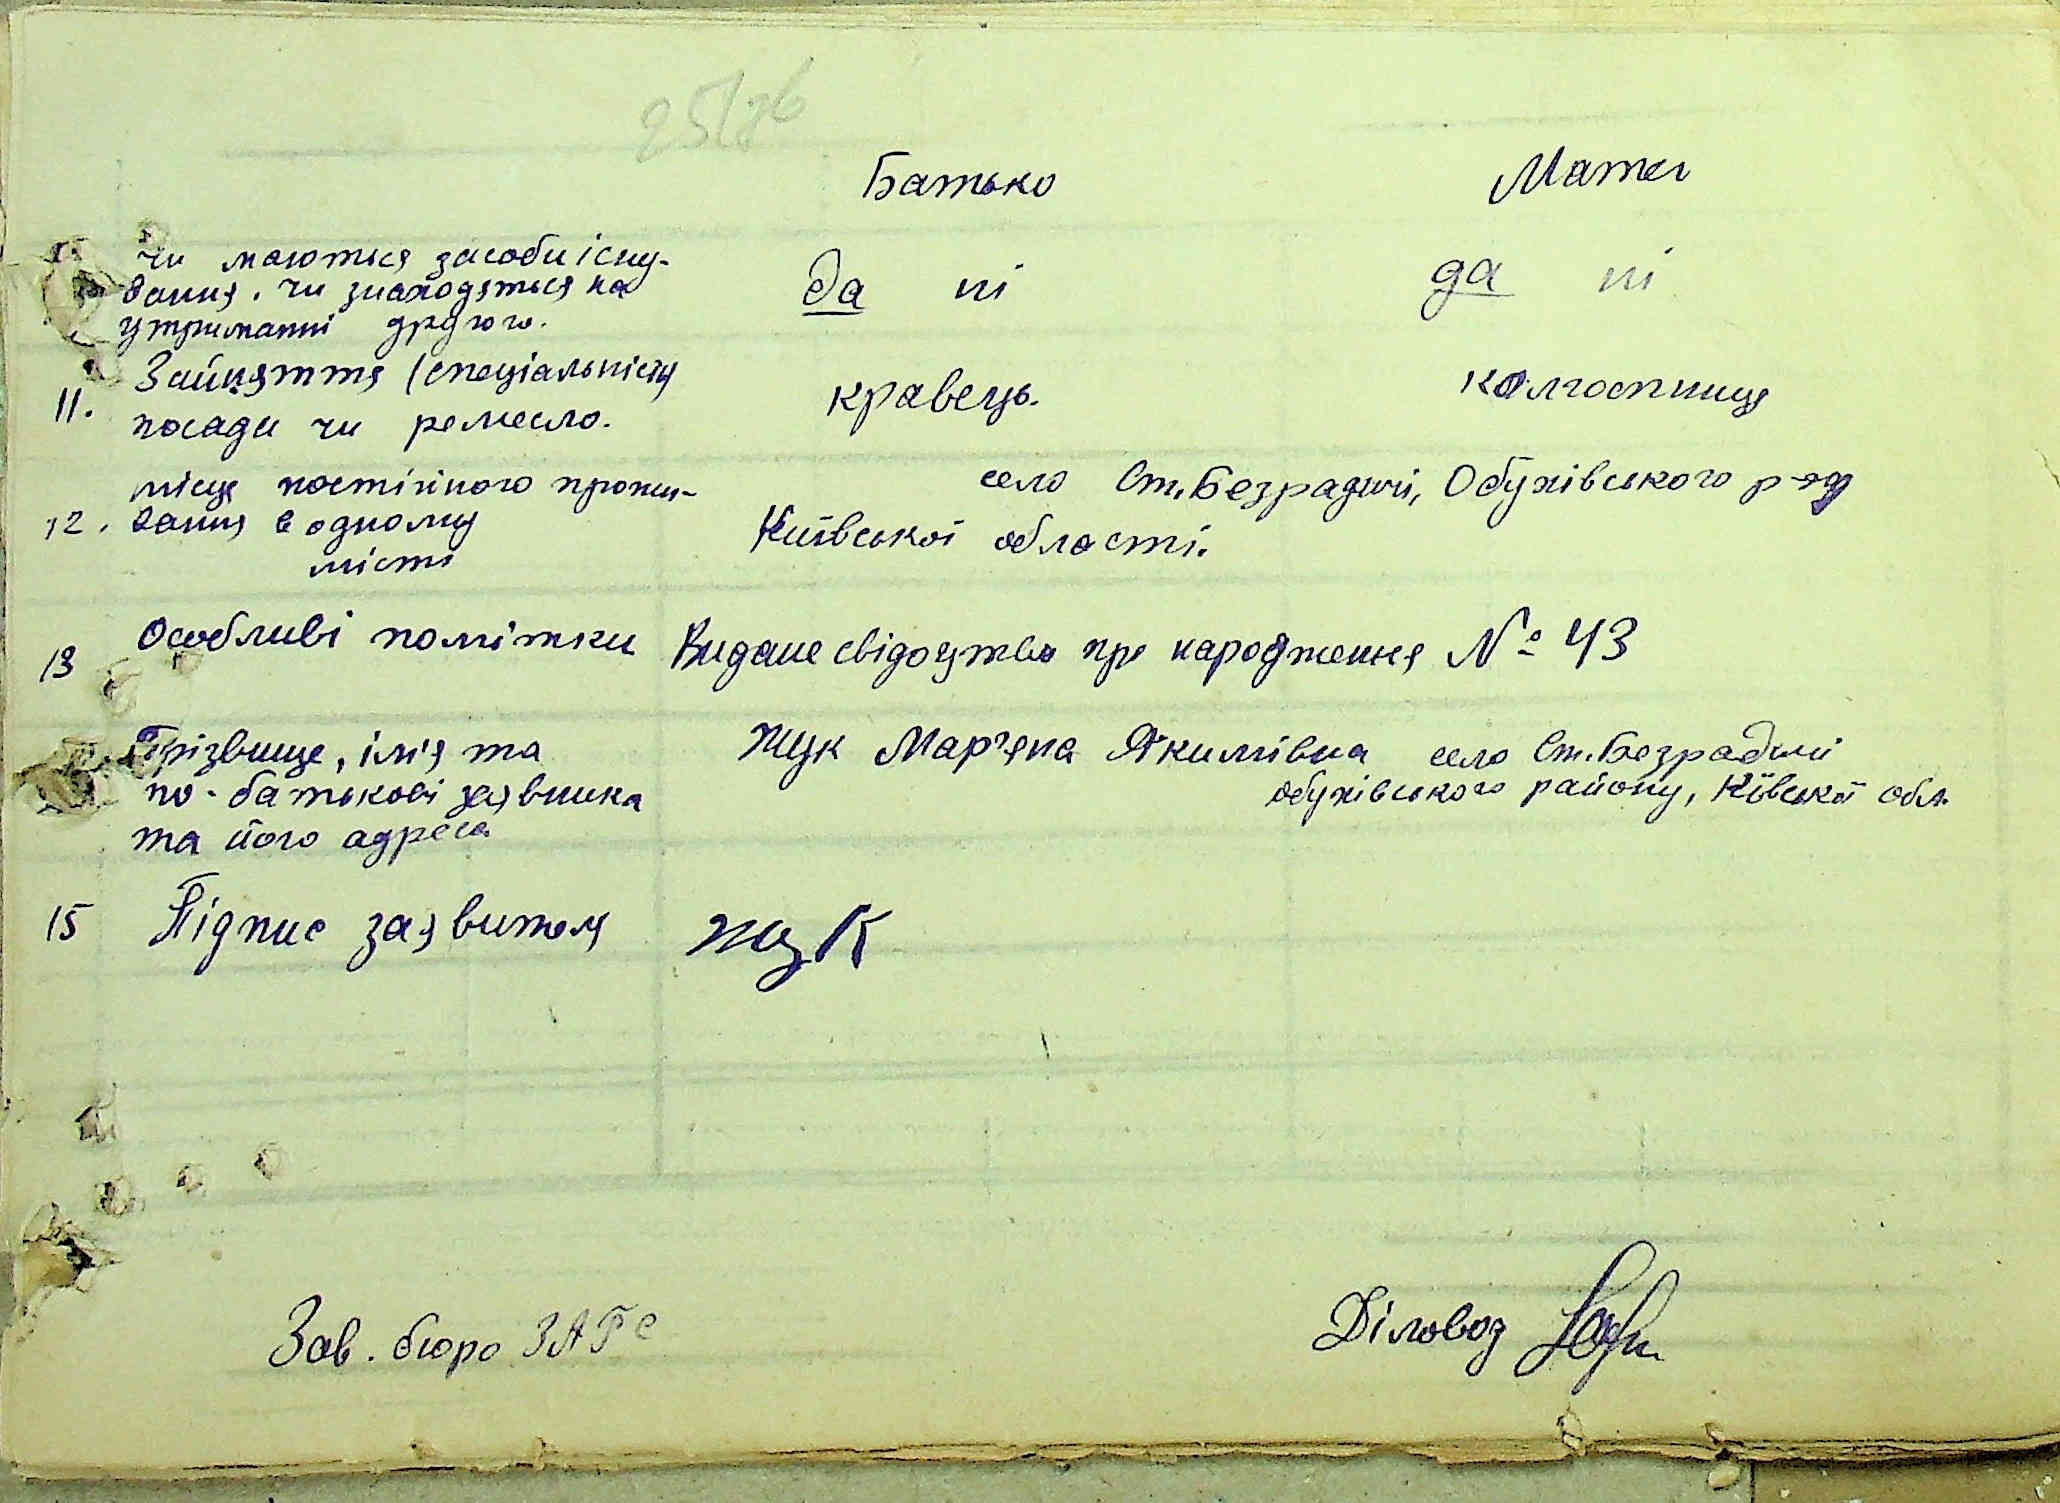 Батько Мати
Чи маються засоби існу-
вання, чи знаходяться на да ні да ні
утриманні другого.
Зайняття (спеціальність
11. посади чи ремесло. кравець. колгоспниця
місце постійного прожи- село Ст. Безрадичі, Обухівського р-ду
12. вання в одному Київської області.
місті
13 Особливі помітки Видане свідоцтво про народження № 43
Прізвище, ім'я та Жук Мар'яна Якимівна село Ст. Безрадичі
по-батькові заявника Обухівського району, Ківської обл.
та його адреса
15 Підпис заявителя Жук
Зав. бюро ЗАГС Діловод